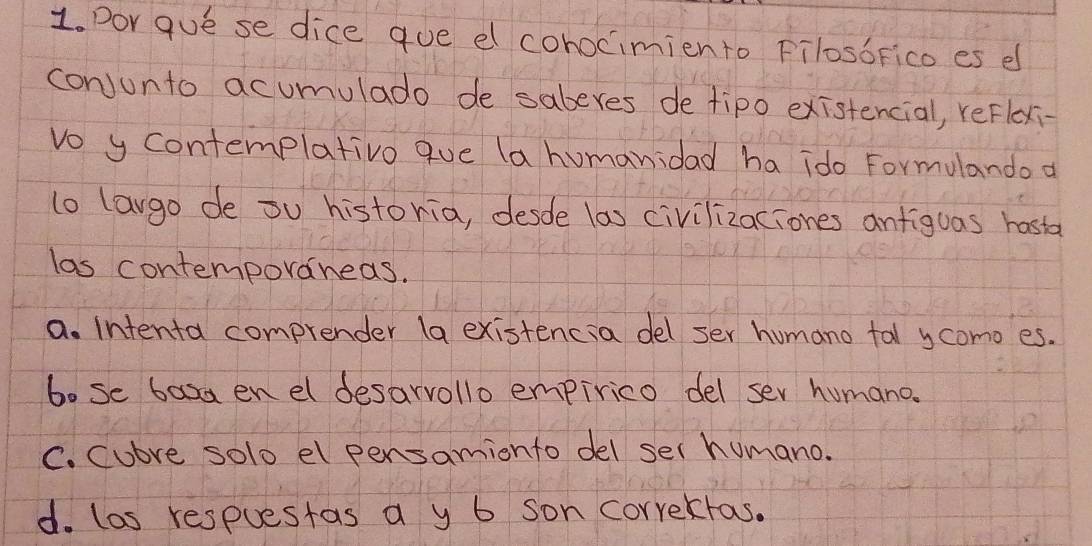 1. Por qué se dice que el conocimiento Filosófico es el
conjunto acumulado de saberes de tipo existencial, reflexi-
vo y contemplativo que la humanidad ha ido Formulando a
lo largo de su historia, desde las civilizaciones antiguas hasta
las contemporáneas.
a. Intenta comprender la existencia del ser humano tal y como es.
b. Se basa en el desarrollo empirico del ser humano.
c. Cubre solo el pensamiento del ser humano.
d. las respuestas a y b son correctas.